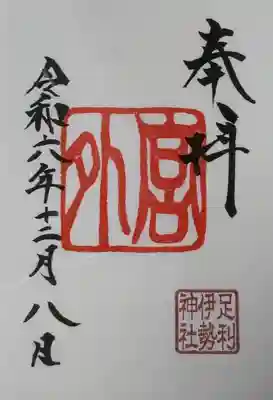 奉拝
外宮
足利
伊勢
神社
令和六年十二月八日